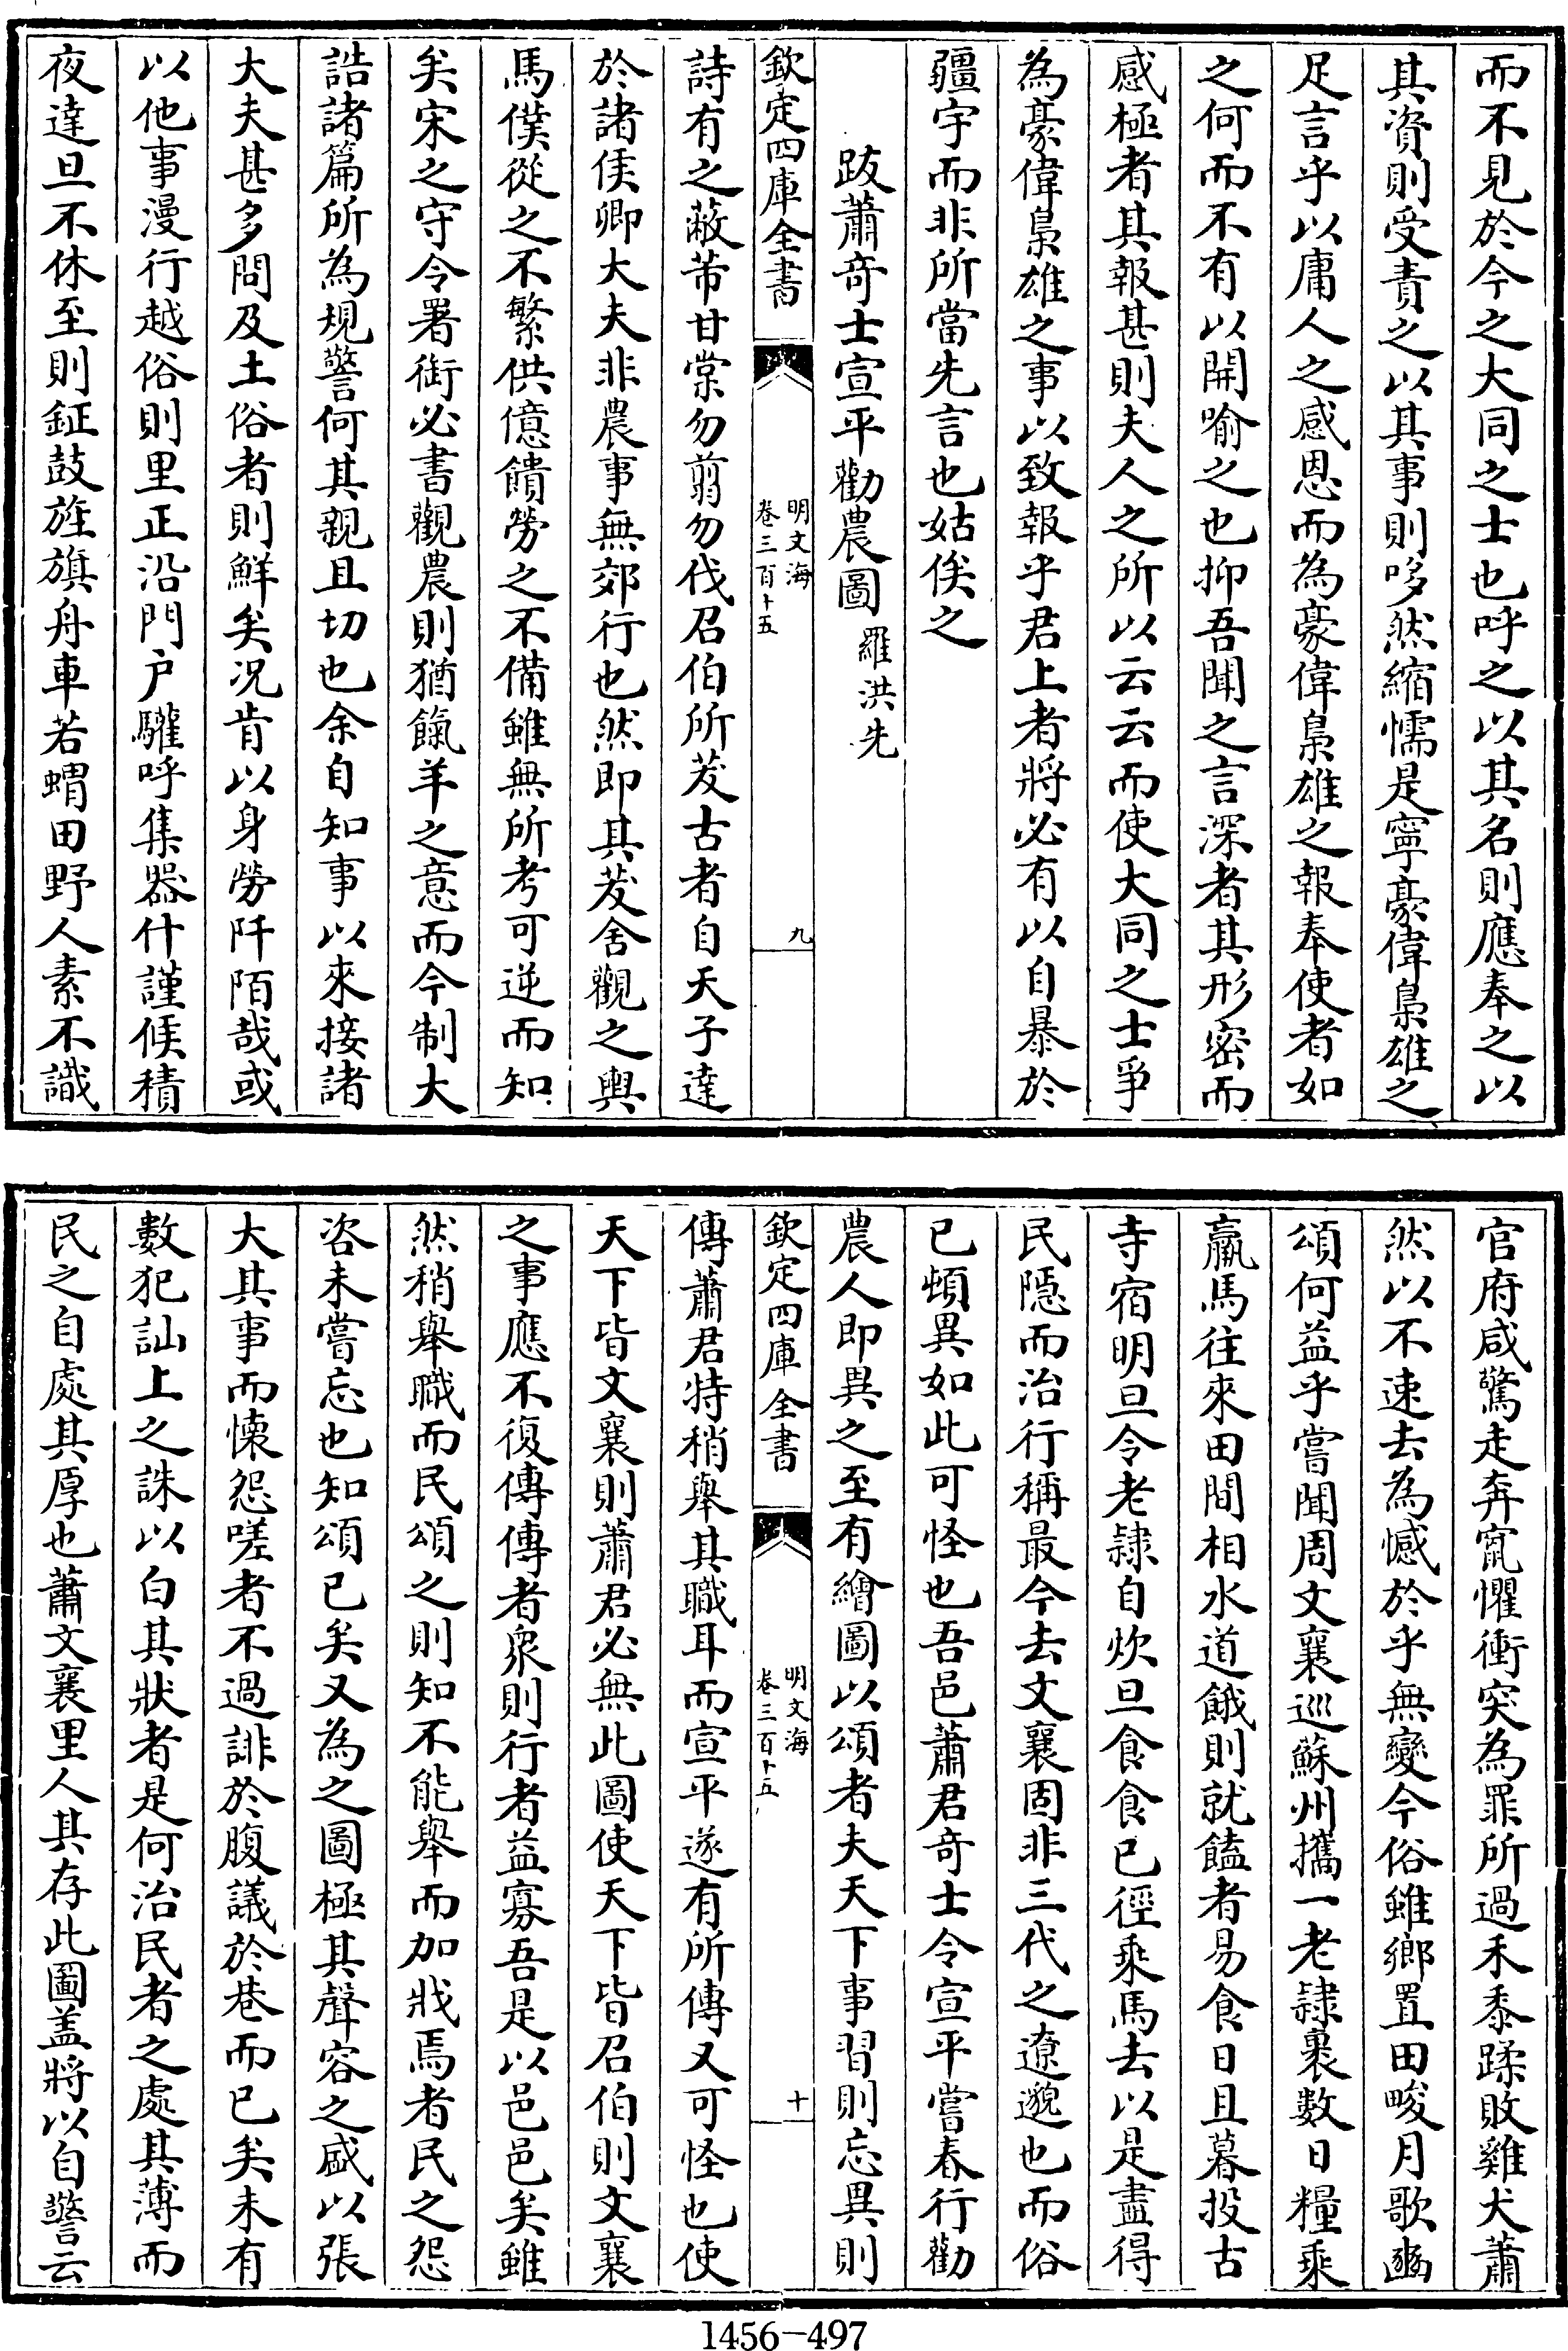 而不見於今之大同之士也呼之以其名則應奉之以
其資則受責之以其事則哆然縮懦是寧豪偉梟雄之
足言乎以庸人之感恩而為豪偉梟雄之報奉使者如
之何而不有以開喻之也抑吾聞之言深者其形密而
感極者其報甚則夫人之所以云云而使大同之士爭
為豪偉梟雄之事以致報乎君上者將必有以自暴於
疆宇而非所當先言也姑俟之
跋蕭奇士宣平勸農圖　羅洪先
欽定四庫全書　明文海卷三百十五　九
詩有之蔽芾甘棠勿翦勿伐召伯所茇古者自天子達
於諸侯卿大夫非農事無郊行也然即其茇舍觀之輿
馬僕從之不繁供億饋勞之不備雖無所考可逆而知
矣宋之守令署銜必書觀農則猶餼羊之意而今制大
誥諸篇所為規警何其親且切也余自知事以來接諸
大夫甚多問及土俗者則鮮矣况肯以身勞阡陌哉或
以他事漫行越俗則里正沿門户驩呼集器什謹候積
夜達旦不休至則鉦鼓旌旗舟車若蝟田野人素不識
官府咸驚走奔竄懼衝突為罪所過禾黍蹂敗雞犬蕭
然以不速去為憾於乎無變今俗雖鄉置田畯月歌豳
頌何益乎嘗聞周文襄巡蘇州攜一老隸裹數日糧乘
羸馬往來田間相水道餓則就饁者易食日且暮投古
寺宿明旦令老隸自炊旦食食已徑乘馬去以是盡得
民隱而治行稱最今去文襄固非三代之遼邈也而俗
已頓異如此可怪也吾邑蕭君奇士令宣平嘗春行勸
農人即異之至有繪圖以頌者夫天下事習則忘異則
欽定四庫全書　明文海卷三百十五　十
傳蕭君特稍舉其職耳而宣平遂有所傳又可怪也使
天下皆文襄則蕭君必無此圖使天下皆召伯則文襄
之事應不復傳傳者衆則行者益寡吾是以邑邑矣雖
然稍舉職而民頌之則知不能舉而加戕焉者民之怨
咨未嘗忘也知頌已矣又為之圖極其聲容之盛以張
大其事而懷怨嗟者不過誹於腹議於巷而已矣未有
數犯訕上之誅以白其狀者是何治民者之處其薄而
民之自處其厚也蕭文襄里人其存此圖盖將以自警云
1456-497